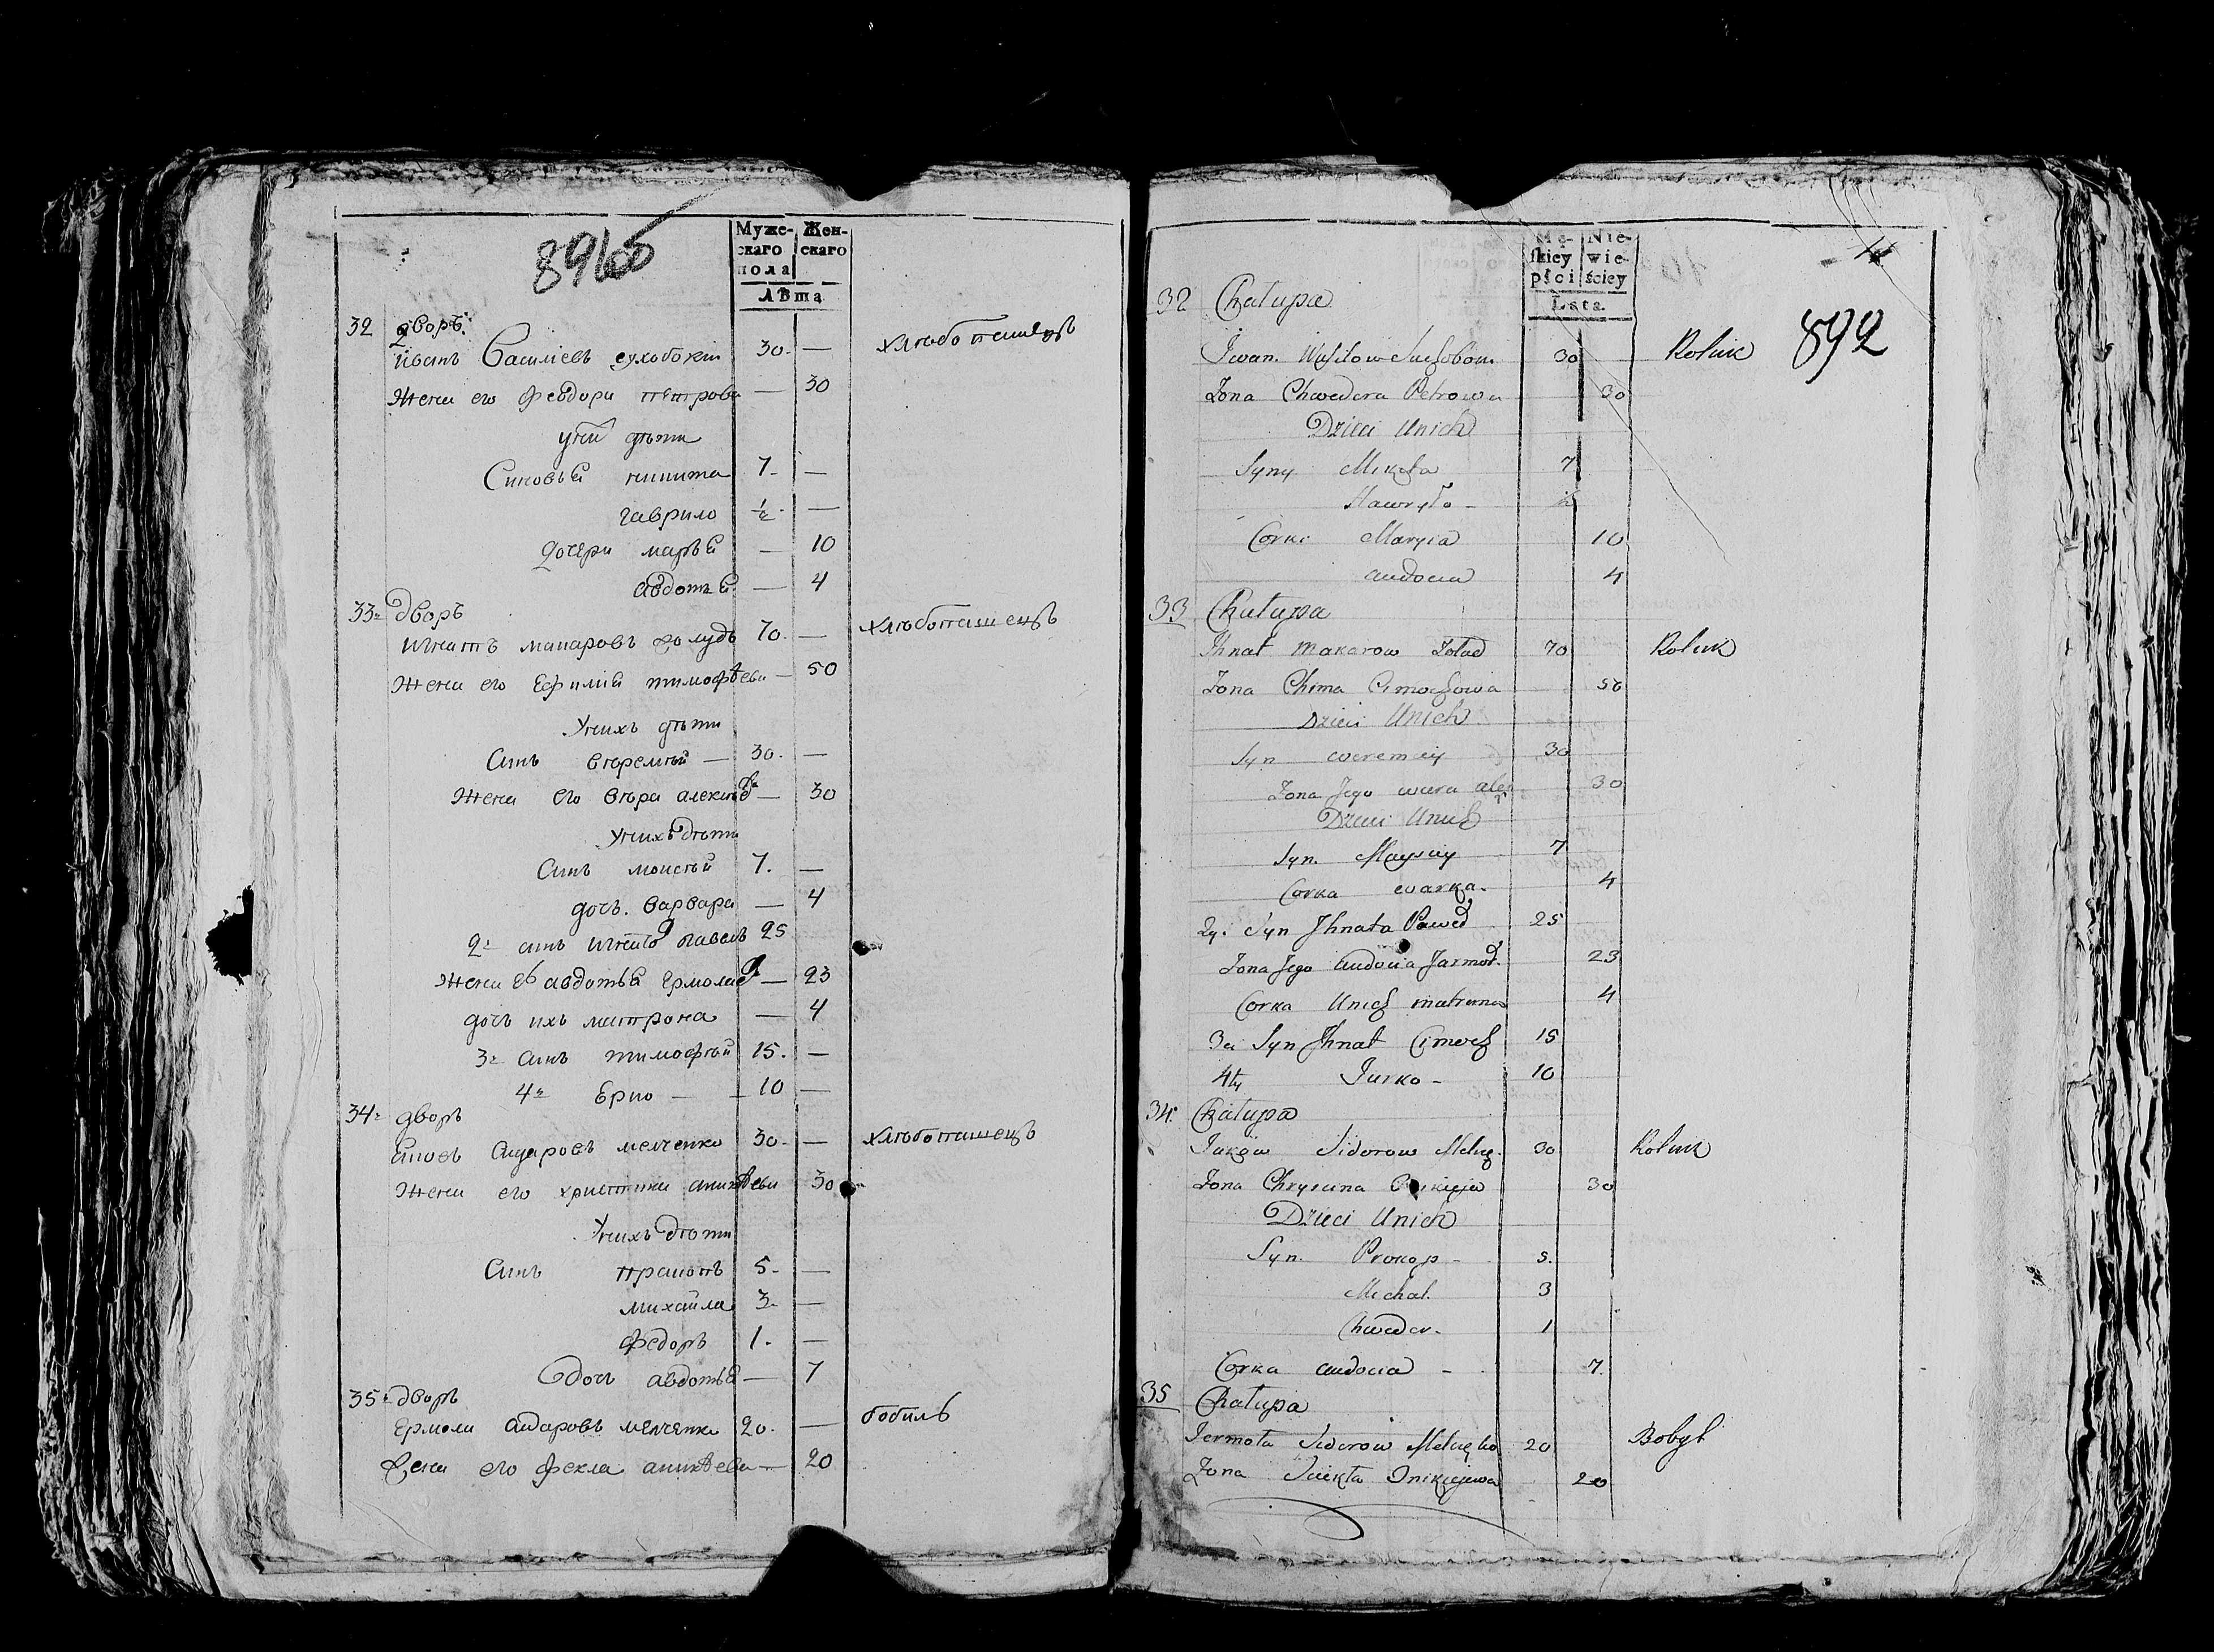 Муже-
скаго
пола
Жен-
скаго
Лѣта
32 дворъ
Иванъ Василіевъ сухобокій 30. — хлѣбопашецъ
Жена его Феодора петрова — 30
у нихъ дѣти
Синовья никита 7. —
гаврило ½. —
дочери марья — 10
авдотья — 4
33 дворъ
Игнатъ макаровъ жолудь 70. — хлѣбопашецъ
Жена его Ефимія тимофѣева — 50
У нихъ дѣти
Синъ еремѣй — 30. —
Жена его вѣра — 30
У нихъ дѣти
Синъ моисѣй 7. —
дочь. варвара — 4
2й синъ павелъ 25
Жена его авдотья — 23
дочь ихъ матрона — 4
3й синъ тимофѣй 15. —
4й — 10 —
34 дворъ
Яковъ сидаровъ мелченко 30. — хлѣбопашецъ
Жена его христина аникѣева 30
У нихъ дѣти
Синъ пракопъ 5. —
михайла 3. —
федоръ 1. —
дочь авдотья — 7
35 дворъ
Ермола сидаровъ мелченко 20. — бобиль
Жена его фекла аникѣева — 20
Mę-
skiey
płci
Nie-
wie-
ściey
Lata.
892
32 Chałupa
Iwan Wasilow 30 Rolnik
Żona Chwedora Petrowa 30
Dzieci Unich
Syny Mikita 7
Hawryło - ½
Corki Maryia 10
audocia 4
33 Chałupa
Ihnat Makarow Żołud 70 Rolnik
Żona Chima Cimochowa 50
Dzieci Unich
Syn weremiey 30
Żona Jego wiera 30
Dzieci Unich
Syn. Maysiey 7
Corka warka. 4
2gi Syn Ihnata Paweł 25
Żona Jego Audocia Jarmoł. 23
Corka Unich matruna 4
3ci Syn Ihnat Cimoch 15
4ty Jurko - 10
34. Chałupa
Jakow Sidorow 30 Rolnik
Żona Chrysina 30
Dzieci Unich
Syn. Prokop - 5.
Michał. 3
Chwedor. 1
Corka audocia - 7.
35 Chałupa
Jermoła Sidorow 20 Bobył
Żona Tekla Onikiejowa 20